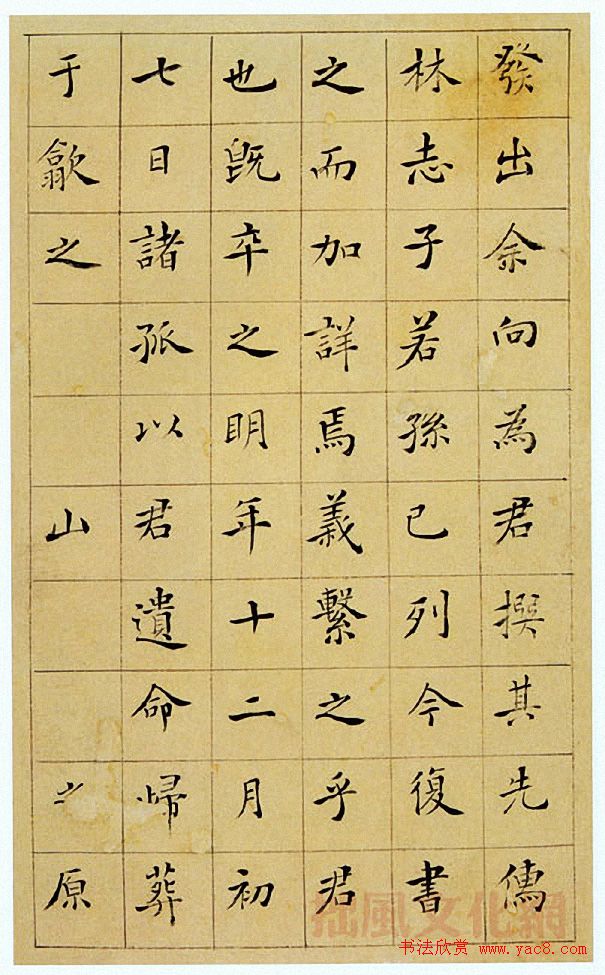 發出余向為君撰其先儁
林志子若孫已列今復書
之而加詳焉義繫之乎君
也既卒之明年十二月初
七日諸孤以君遺命歸葬
于歙之山之原
书法欣赏 www.yac8.com